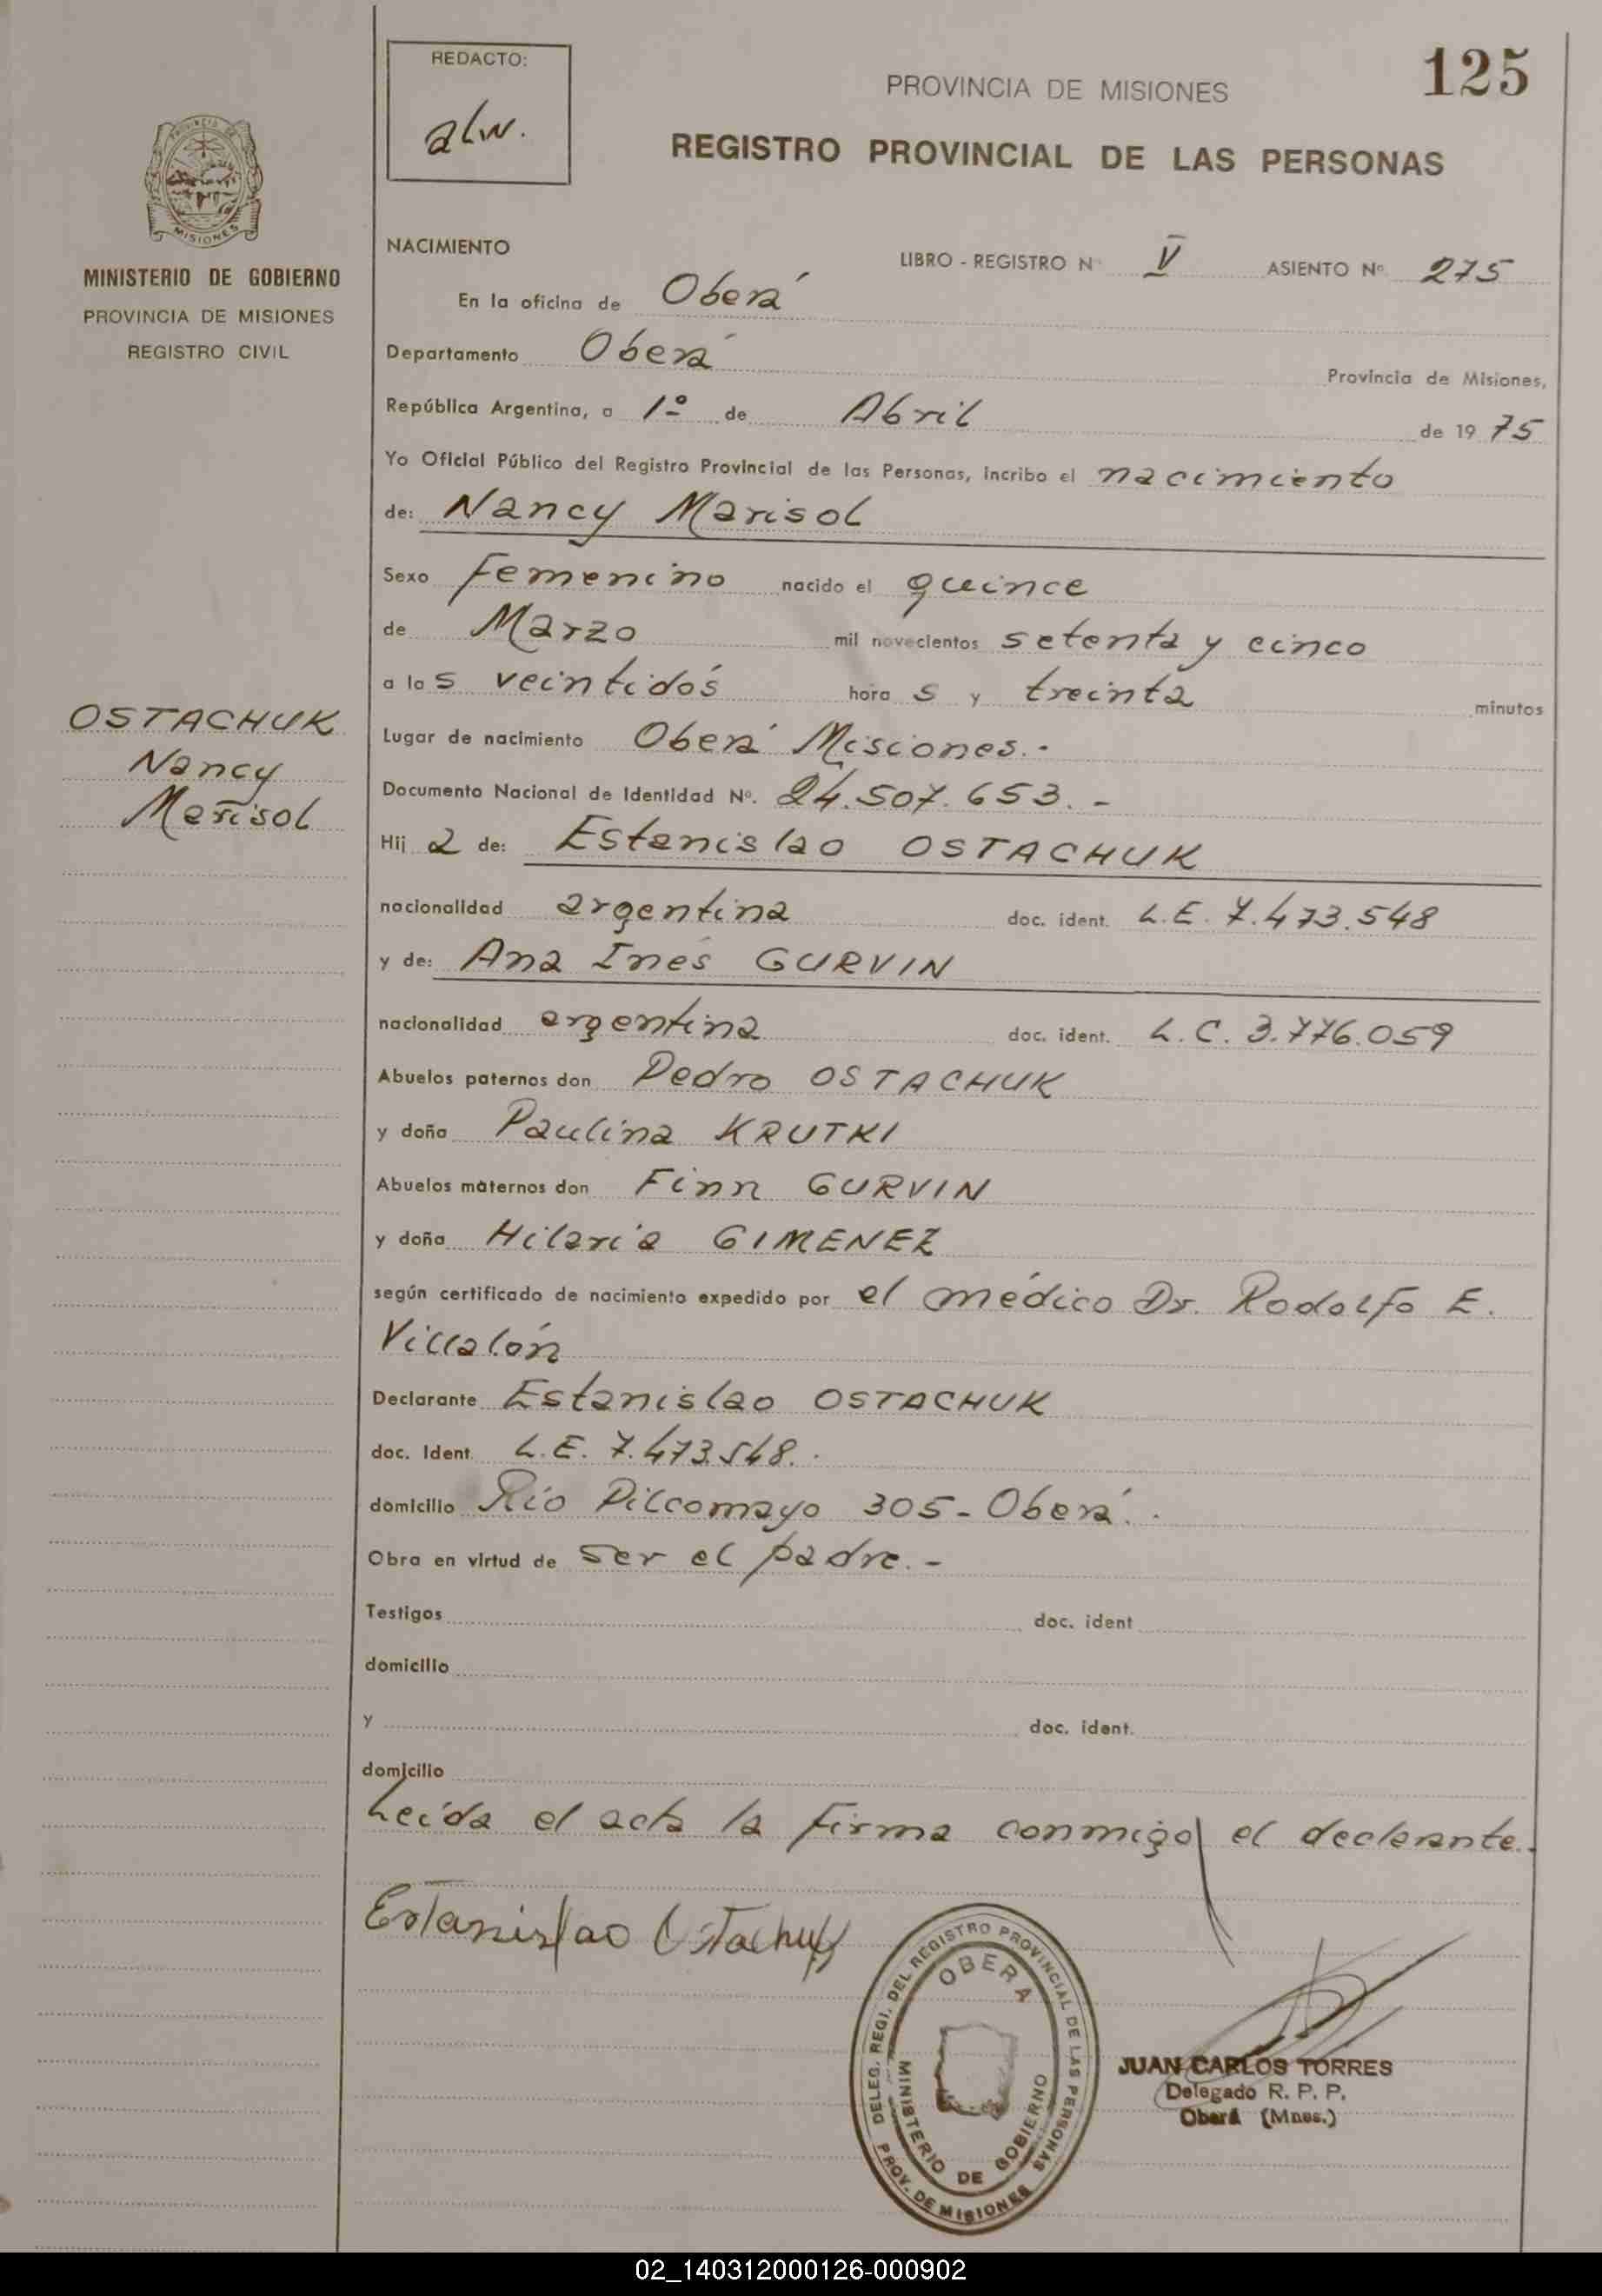 REDACTO:
alw.
125
PROVINCIA DE MISIONES
REGISTRO PROVINCIAL DE LAS PERSONAS
MISIONES
MINISTERIO DE GOBIERNO
PROVINCIA DE MISIONES
REGISTRO CIVIL
NACIMIENTO
LIBRO - REGISTRO Nº V ASIENTO Nº 275
En la oficina de Oberá
Departamento Oberá Provincia de Misiones,
República Argentina, a 1º de Abril de 19 75
Yo Oficial Público del Registro Provincial de las Personas, incribo el nacimiento
de: Nancy Marisol
Sexo femenino nacido el quince
de Marzo mil novecientos setenta y cinco
a las veintidós horas y treinta minutos
OSTACHUK
Nancy
Marisol
Lugar de nacimiento Oberá Misiones.-
Documento Nacional de Identidad Nº. 24.507.653.-
Hij a de: Estanislao OSTACHUK
nacionalidad argentina doc. ident. L.E. 7.473.548
y de: Ana Inés GURVIN
nacionalidad argentina doc. ident. L.C. 3.776.059
Abuelos paternos don Pedro OSTACHUK
y doña Paulina KRUTKI
Abuelos maternos don Finn GURVIN
y doña Hilaria GIMENEZ
según certificado de nacimiento expedido por el médico Dr. Rodolfo E.
Villalón
Declarante Estanislao OSTACHUK
doc. Ident. L.E. 7.473.548.-
domicilio Río Pilcomayo 305-Oberá.-
Obra en virtud de ser el padre.-
Testigos doc. ident
domicilio
y doc. ident.
domicilio
Leída el acta la firma conmigo el declarante.
Estanislao Ostachuk
DELEG. REGI. DEL REGISTRO PROVINCIAL DE LAS PERSONAS
OBERA
MINISTERIO DE GOBIERNO
PROV. DE MISIONES
JUAN CARLOS TORRES
Delegado R. P. P.
Oberá (Mnes.)
02_140312000126-000902